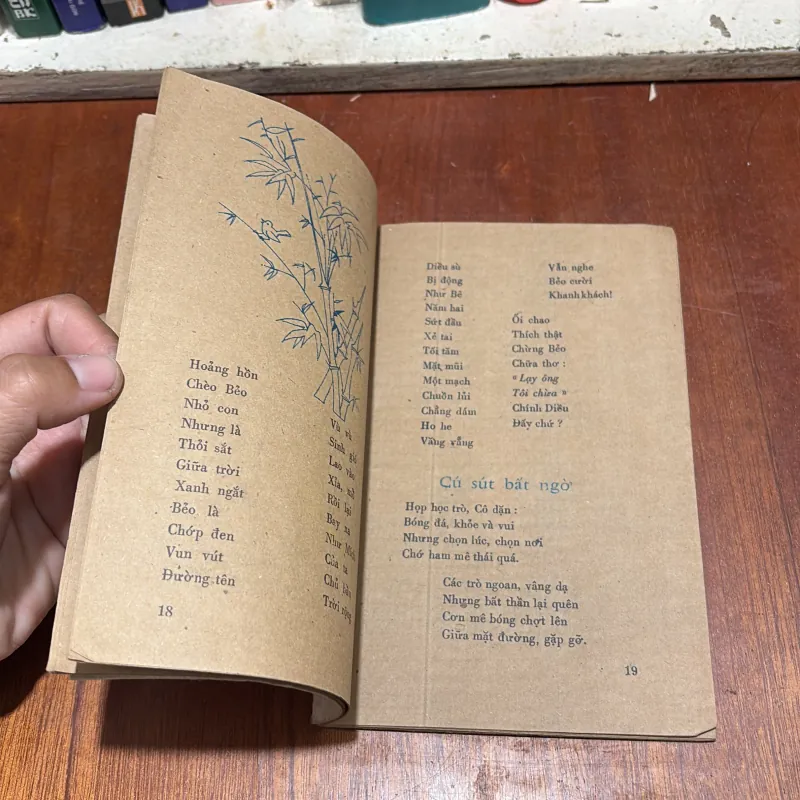 BK
Hoảng hồn
Chèo Bẻo
Nhỏ con
Nhưng là
Thỏi sắt
Giữa trời
Xanh ngắt
Bẻo là
Chớp đen
Vun vút
Đường tên
Vù vù
Sinh gió
Lao vào
Xỉa, mổ
Rồi lại
Bay xa
Như
Của ta
Chủ
Trời
18
Diều sù
Bị động
Như Bê
Năm hai
Sứt đầu
Xẻ tai
Tối tăm
Mặt mũi
Một mạch
Chuồn lủi
Chẳng dám
Ho he
Văng vẳng
Vẫn nghe
Bẻo cười
Khanh khách!
Ối chao
Thích thật
Chừng Bẻo
Chữa thơ :
« Lạy ông
Tôi chừa »
Chính Diều
Đấy chứ ?
Cú sút bất ngờ
Họp học trò, Cô dặn :
Bóng đá, khỏe và vui
Nhưng chọn lúc, chọn nơi
Chớ ham mê thái quá.
Các trò ngoan, vâng dạ
Nhưng bất thần lại quên
Cơn mê bóng chợt lên
Giữa mặt đường, gặp gỡ.
19